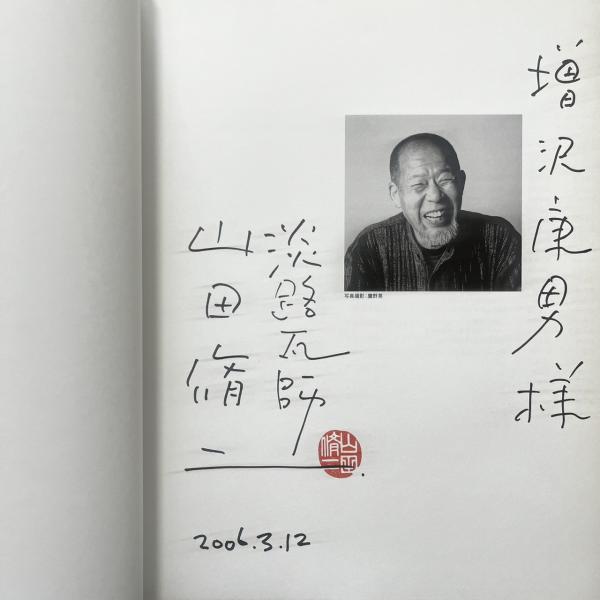 増沢康男様
写真撮影:鷹野晃
淡路瓦師
山田脩二
山田
脩二
2006.3.12